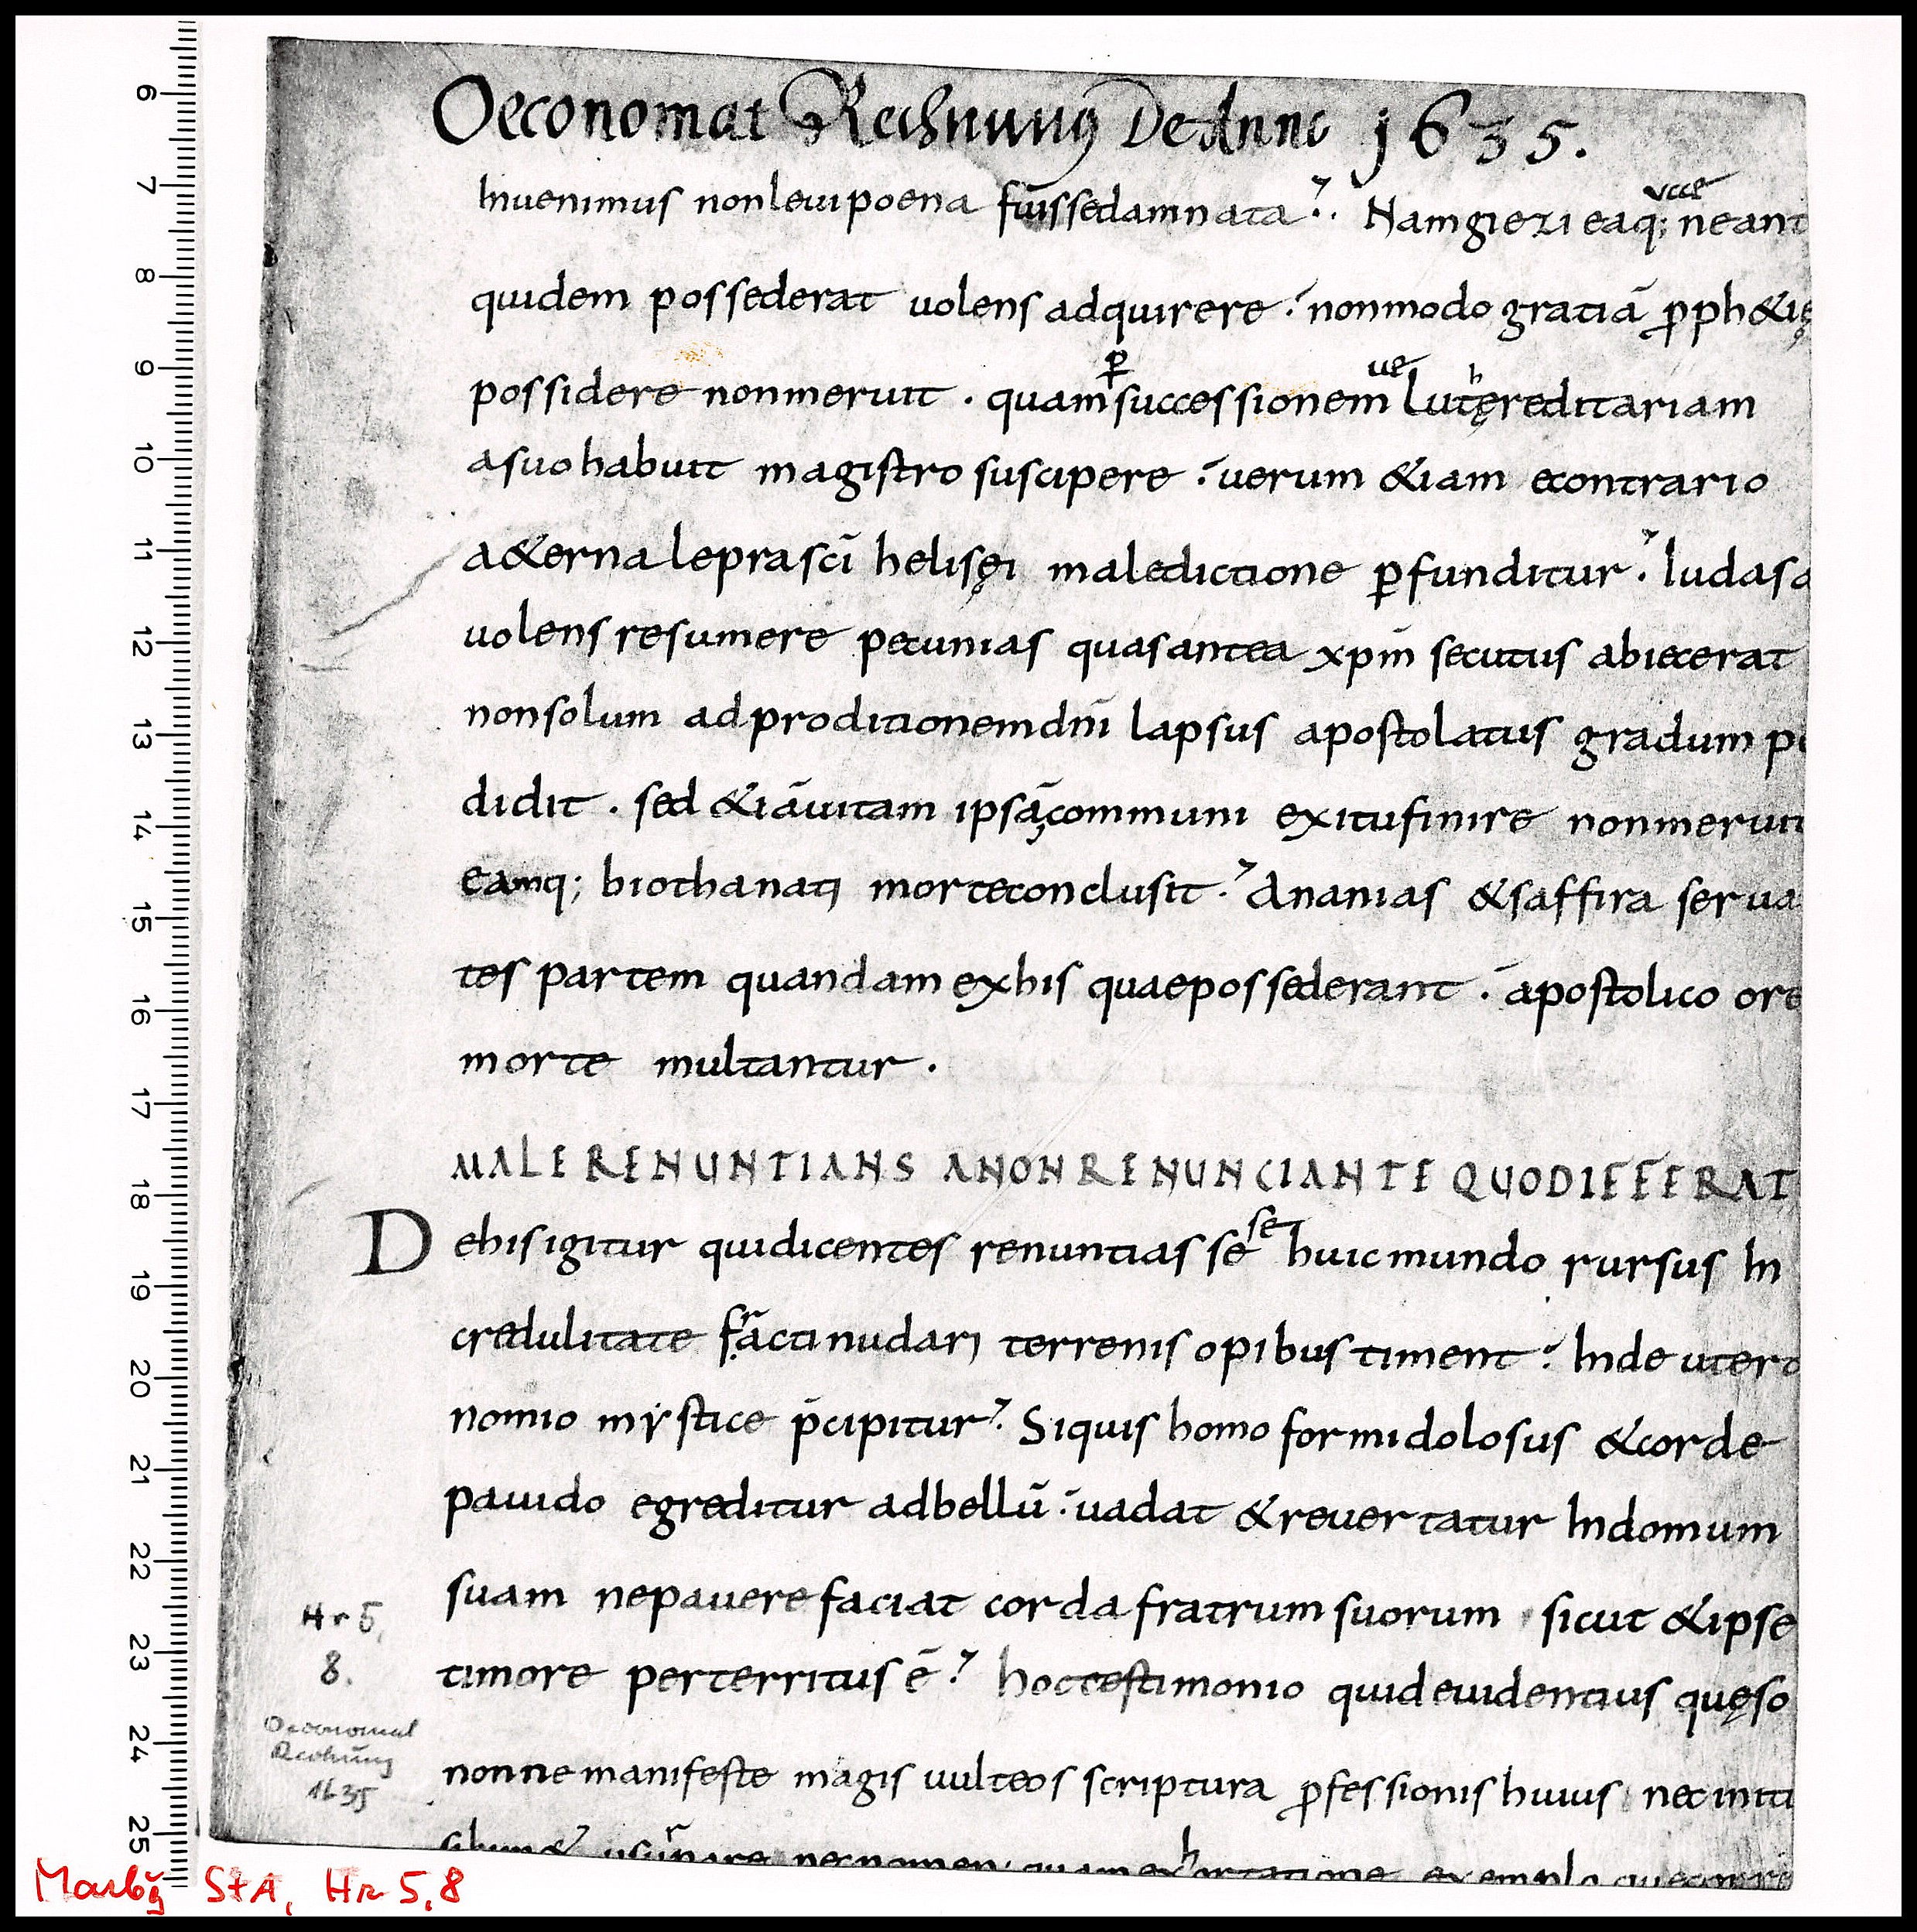 6
7
8
9
10
11
12
13
14
15
16
17
18
19
20
21
22
23
24
25
Oeconomat Rechnung De Anno 1635.
Inuenimus non leui poena fuisse damnata. Nam giezi ea q; ne ant
quidem possederat uolens adquirere. non modo gratiā ꝓph&ię
possidere non meruit. quam ꝑ successionem uel ut hęreditariam
a suo habuit magistro suscipere. uerum &iam econtrario
a&erna lepra scī helisęi maledictione ꝑfunditur. Iudas a
uolens resumere pecunias quas antea xpm̄ secutus abiecerat
non solum ad proditionem dnī lapsus apostolatus gradum pe
didit. sed &iā uitam ipsā communi exitu finire non meruit
eamq; biothanati morte conclusit. Ananias & saffira serua
tes partem quandam ex his quae possederant. apostolico ore
morte multantur.
MALE RENUNTIANS A NON RENUNCIANTE QUO DIFFERAT
De his igitur qui dicentes renuntiasse se huic mundo rursus In
credulitate fracti nudari terrenis opibus timent. In deutero
nomio mystice p̄cipitur. Si quis homo formidolosus & corde
pauido egreditur ad bellū. uadat & reuertatur In domum
suam ne pauere faciat corda fratrum suorum sicut & ipse
timore perterritus ē. hoc testimonio quid euidentius quęso
nonne manifeste magis uult eos scriptura ꝓfessionis huius nec initi
nec nomen quam exhortatione exemplo
Hr 5,
8.
Oeconomat
Rechnung
1635
Marbg StA, Hr 5,8